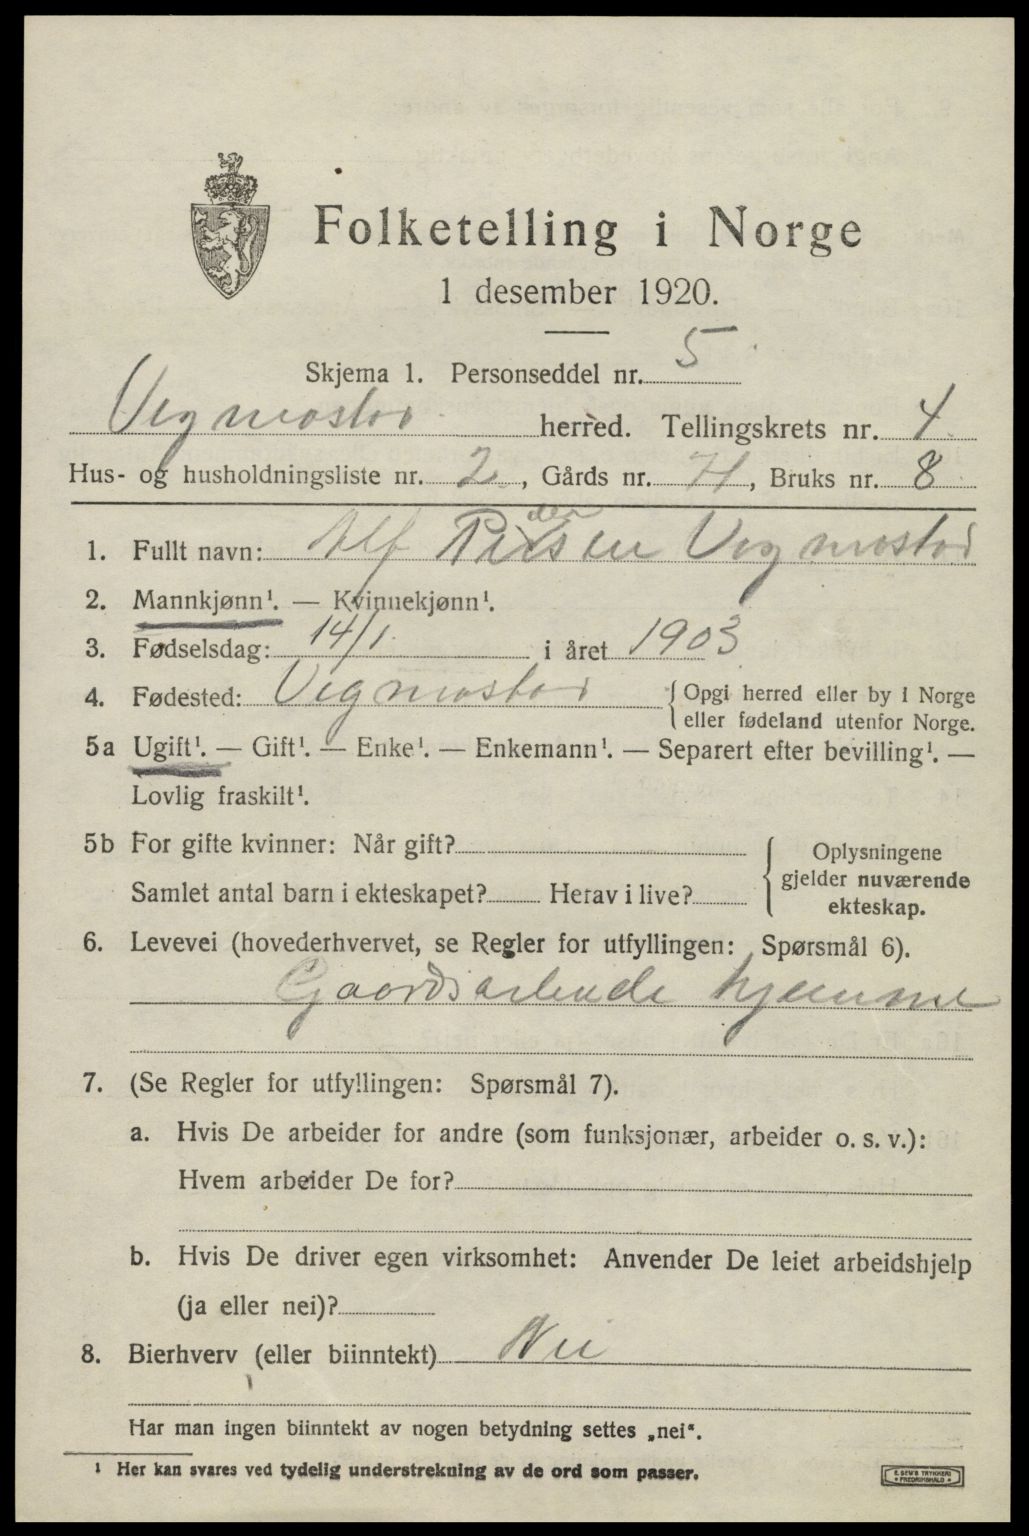 Folketelling i Norge
1 desember 1920.
Skjema 1. Personseddel nr. 5
Vegmostad herred. Tellingskrets nr. 4
Hus- og husholdningsliste nr. 2, Gårds nr. 71, Bruks nr. 8
1. Fullt navn: Alf Pedersen Vegmostad
2. Mannkjønn¹. — Kvinnekjønn¹.
3. Fødselsdag: 14/1. i året 1903
4. Fødested: Vegmostad {Opgi herred eller by i Norge
eller fødeland utenfor Norge.
5a Ugift¹. — Gift¹. — Enke¹. — Enkemann¹. — Separert efter bevilling¹. —
Lovlig fraskilt¹.
5b For gifte kvinner: Når gift?
Samlet antal barn i ekteskapet? Herav i live?
{Oplysningene
gjelder nuværende
ekteskap.
6. Levevei (hovederhvervet, se Regler for utfyllingen: Spørsmål 6).
Gaardsarbeide hjemme
7. (Se Regler for utfyllingen: Spørsmål 7).
a. Hvis De arbeider for andre (som funksjonær, arbeider o. s. v.):
Hvem arbeider De for?
b. Hvis De driver egen virksomhet: Anvender De leiet arbeidshjelp
(ja eller nei)?
8. Bierhverv (eller biinntekt) Nei
Har man ingen biinntekt av nogen betydning settes „nei“.
¹ Her kan svares ved tydelig understrekning av de ord som passer.
E. SEM'S TRYKKERI
FREDRIKSHALD